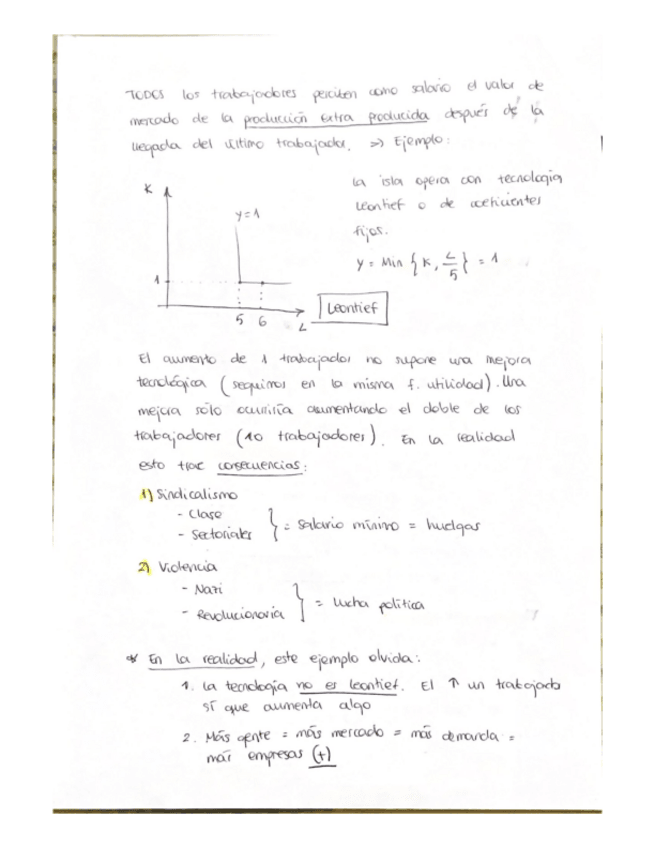 TODOS los trabajadores perciben como salario el valor de
mercado de la producción extra producida después de la
llegada del último trabajador. => Ejemplo:
La isla opera con tecnología
Leontief o de coeficientes
fijos.
Y = Min { K, L/5 } = 1
K
y=1
1
5 6
L
Leontief
El aumento de 1 trabajador no supone una mejora
tecnológica (seguimos en la misma f. utilidad). Una
mejora sólo ocurriría aumentando el doble de los
trabajadores (10 trabajadores). En la realidad
esto trae consecuencias:
1) Sindicalismo
- Clase
- Sectoriales } = salario mínimo = huelgas
2) Violencia
- Nazi
- Revolucionaria } = lucha política
* En la realidad, este ejemplo olvida:
1. La tecnología no es leontief. El ↑ un trabajado
sí que aumenta algo
2. Más gente = más mercado = más demanda =
más empresas (+)